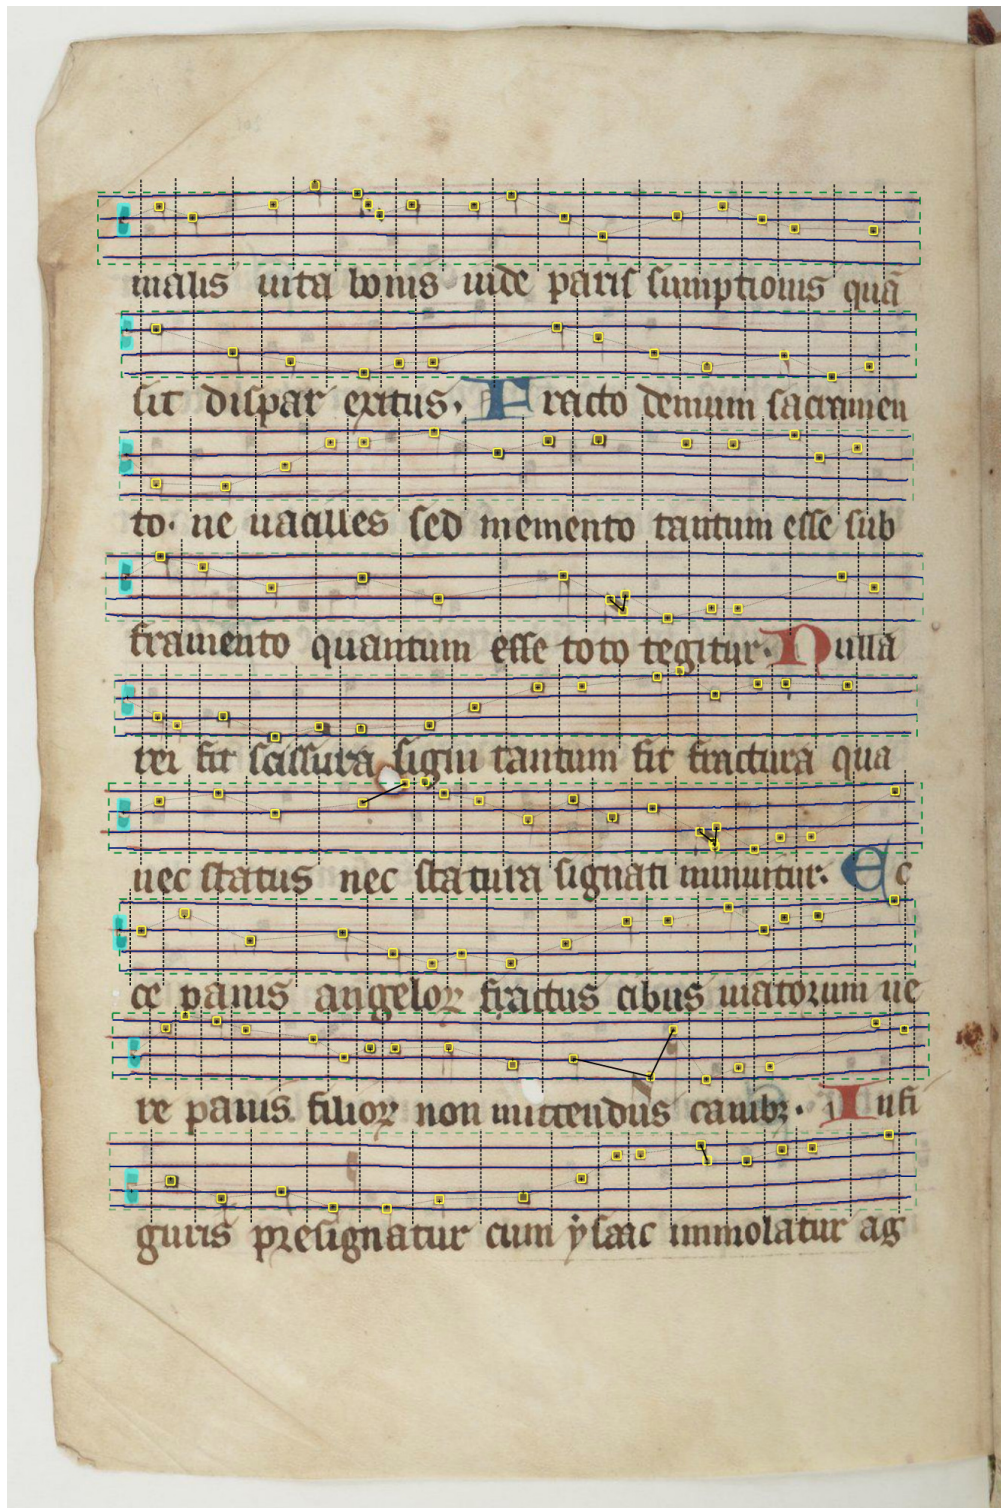 malis uita bonis uide paris sumptionis quā
sit dispar exitus. Fracto demum sacramen
to. ne uacilles sed memento tantum esse sub
framento quantum esse toto tegitur. Nulla
rei fit scissura signi tantum fit fractura qua
nec status nec statura signati minuitur. Ec
ce panis angeloꝝ fractus cibus uiatorum ue
re panis filioꝝ non mittendus canibꝫ. In fi
guris presignatur cum ẏsaac immolatur ag